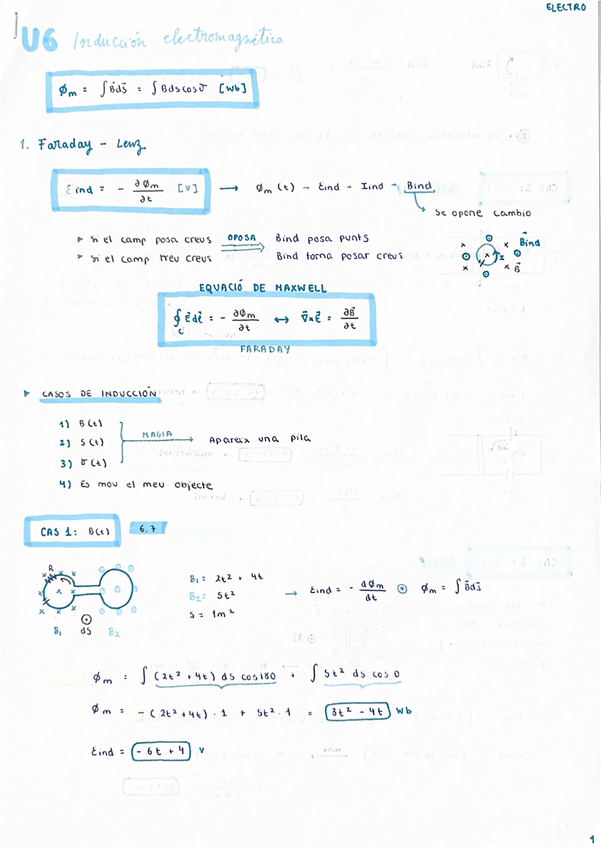 ELECTRO
U6 Inducción electromagnética
ϕm = ∫B⃗dS⃗ = ∫Bds cosσ [Wb]
1. Faraday - Lenz
Eind = - ∂ϕm/∂t [V] → ϕm (t) - Eind - Iind - Bind
Se opone cambio
▸ Si el camp posa creus OPOSA Bind posa punts
▸ Si el camp treu creus Bind torna posar creus
B⃗ind
I
B⃗
EQUACIÓ DE MAXWELL
∮c E⃗dℓ⃗ = - ∂ϕm/∂t ↔ ∇⃗xE⃗ = ∂B⃗/∂t
FARADAY
▸ CASOS DE INDUCCIÓN
1) B(t)
2) S(t) MAGIA → Apareix una pila
3) σ(t)
4) Es mou el meu objecte
CAS 1: B(t) 6.7
R
B₁ dS B₂
B₁ = 2t² + 4t
B₂ = 5t²
S = 1m²
→ Eind = - dϕm/dt ⊙ ϕm = ∫B⃗dS⃗
ϕm = ∫(2t² + 4t) ds cos180 + ∫5t² ds cos 0
ϕm = -(2t² + 4t) · 1 + 5t² · 1 = 3t² - 4t Wb
Eind = -6t + 4 V
1